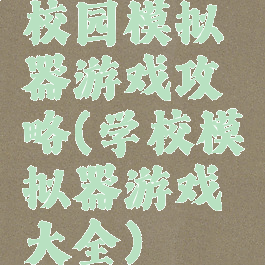 校园模拟
器游戏攻
略(学校模
拟器游戏
大全)